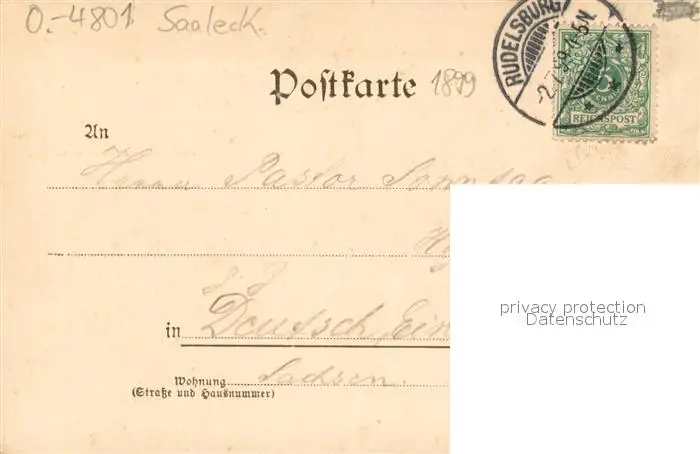 O.-4801 Saaleck.
RUDELSBURG
Poſtkarte 1899
REICHSPOST
An
Herrn Pastor Sonntag
in Deutsch Ein
Wohnung Sachsen.
(Straße und Hausnummer)
privacy protection
Datenschutz